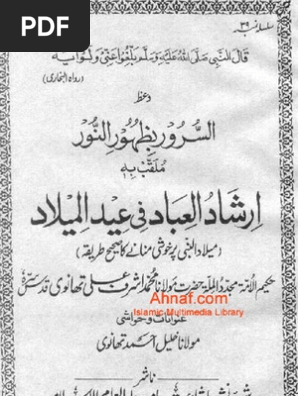 PDF
سلسلہ نمبر ۳۹
قال النبی صلی اللہ علیہ وسلم بلغوا عنی ولو اٰیۃ
(رواہ البخاری)
وعظ
السرور بظہور النور
ملقب بہ
ارشاد العباد فی عید المیلاد
(میلاد النبی پر خوشی منانے کا صحیح طریقہ)
حکیم الامۃ مجدد الملۃ حضرت مولانا محمد اشرف علی تھانوی قدس سرہٗ
Ahnaf.com
Islamic Multimedia Library
عنوانات و حواشی
مولانا خلیل احمد تھانوی
ناشر